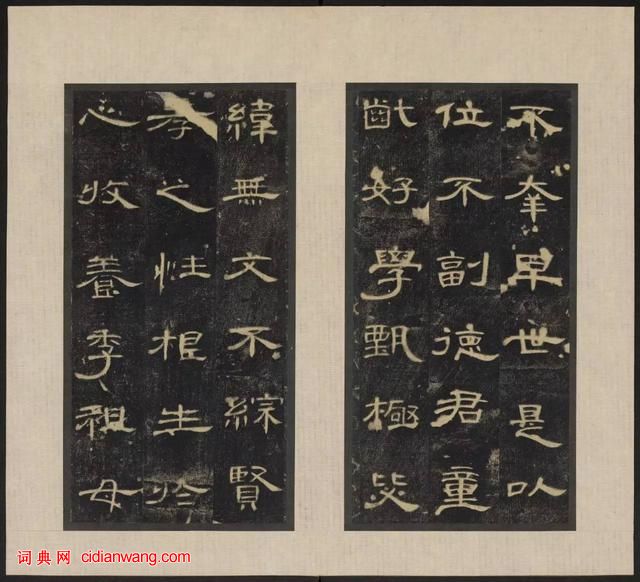 不幸早世是以
位不副德君童
齔好學甄極毖
緯無文不綜賢
孝之性根生於
心收養季祖母
词典网 cidianwang.com